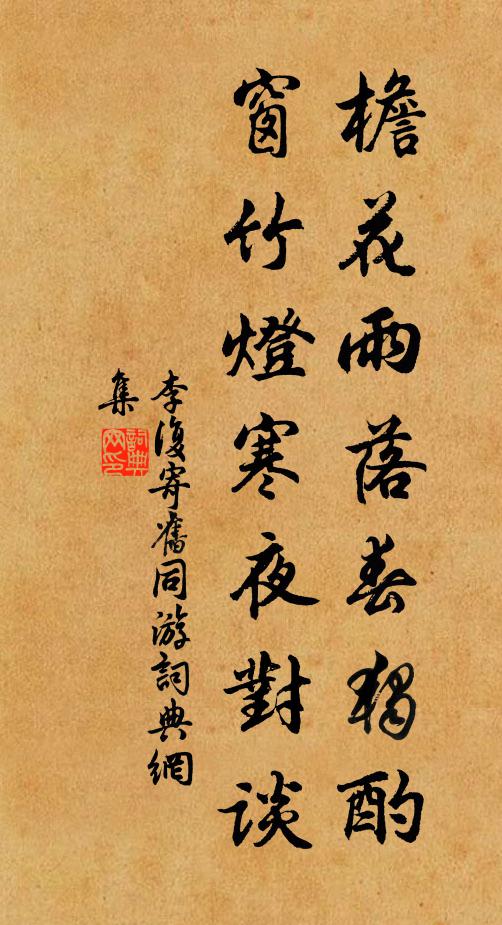 檐花雨落春獨酌
窗竹燈寒夜對談
李復寄舊同游詞典網
集
詞典網印